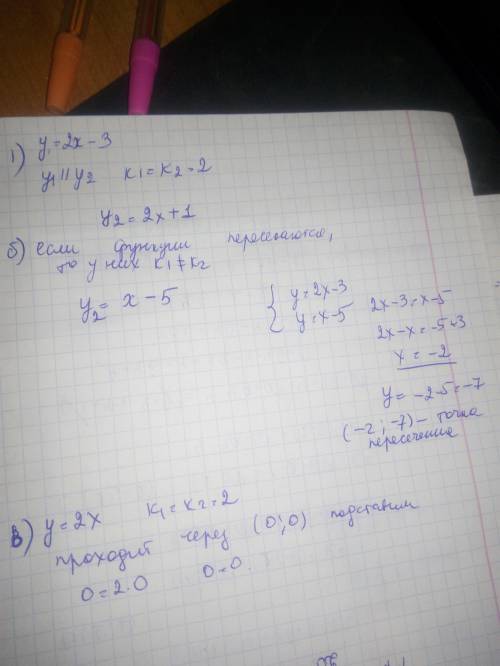 1) y₁=2x-3
y₁||y₂ k₁=k₂=2
y₂=2x+1
б) если функции пересекаются,
то у них k₁≠k₂
y₂= x-5
{ y=2x-3
y=x-5
2x-3=x-5
2x-x=-5+3
x=-2
y=-2-5=-7
(-2;-7)- точка
пересечения
в) y=2x k₁=k₂=2
проходит через (0;0) подставим
0=2·0 0=0.